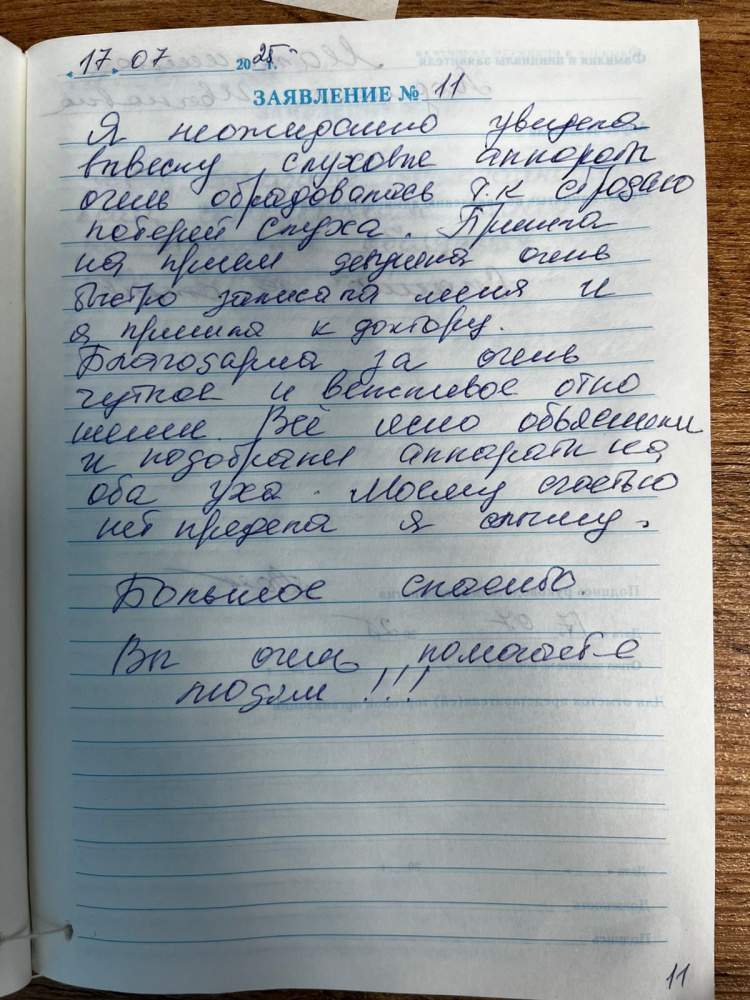 17.07 2025 г.
ЗАЯВЛЕНИЕ № 11
Я неожиданно увидела
вывеску, слуховые аппараты
очень обрадовалась т.к страдаю
потерей слуха. Пришла
на прием девушка очень
быстро записала меня и
я пришла к доктору.
Благодарна за очень
чуткое и вежливое отно
шении. Всё ясно объяснили
и подобрали аппараты на
оба уха. Моему счастью
нет предела я слышу.
Большое спасибо.
Вы очень помогаете
людям !!!
11